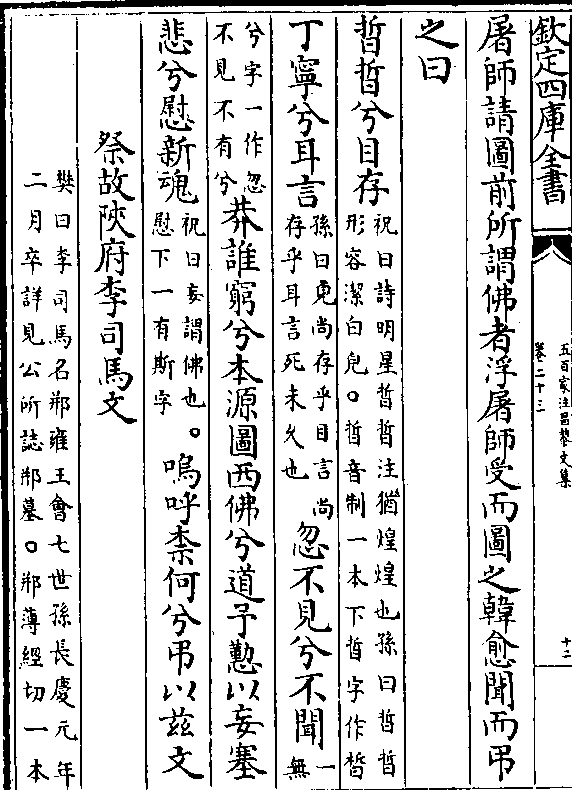 欽定四庫全書
五百家注昌黎文集
卷二十三
十二
屠師請圖前所謂佛者浮屠師受而圖之韓愈聞而弔
之曰
晢晢兮目存
祝曰詩明星晢晢注猶煌煌也孫曰晢晢
形容潔白皃。晢音制一本下晢字作晳
丁寧兮耳言
孫曰皃尚存乎目言尚
存乎耳言死未久也
忽不見兮不聞
一無
兮字一作忽
不見不有兮
莽誰窮兮本源圖西佛兮道予懃以妄塞
悲兮慰新魂
祝曰妄謂佛也。
慰下一有斯字
嗚呼柰何兮弔以兹文
祭故陜府李司馬文
樊曰李司馬名郱雍王會七世孫長慶元年
二月卒詳見公所誌郱墓。郱薄經切一本